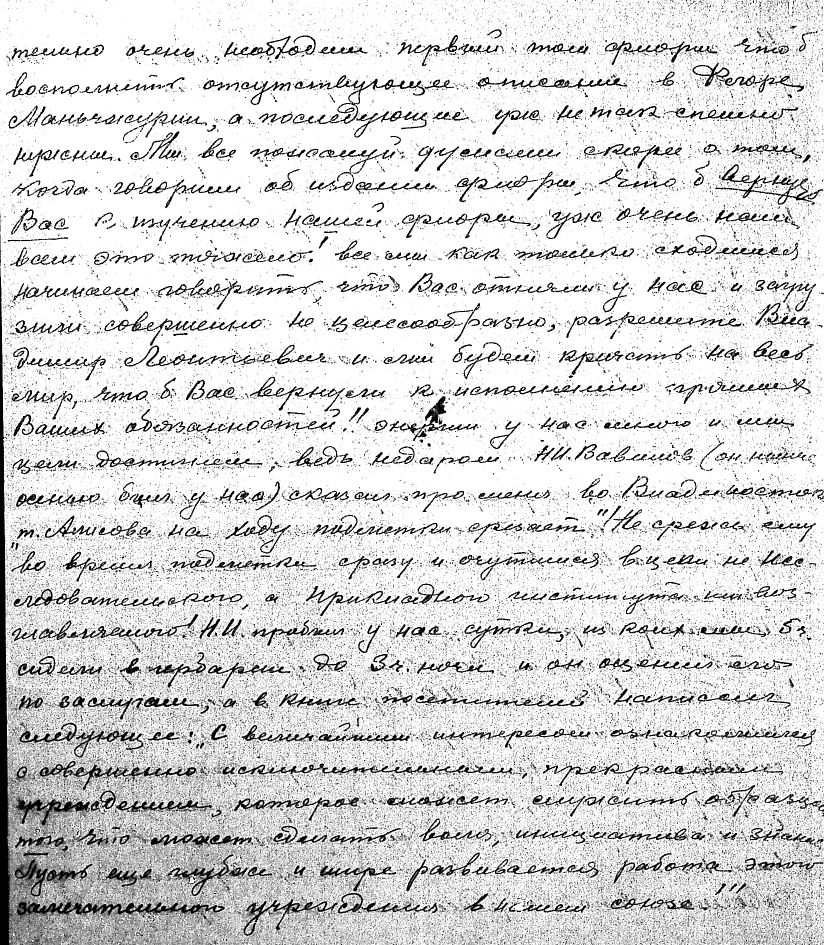 тельно очень необходим первый том флоры что б
восполнить отсутствующее описание в Флоре
Маньчжурии, а последующие уж не так спешно
нужны. Мы все пожалуй думаем скорее о том,
когда говорим об издании флоры, что б вернуть
Вас к изучению нашей флоры, уж очень нам
всем это тяжело! все мы как только сходимся
начинаем говорить, что Вас отняли у нас и загру-
зили совершенно не целесообразно, разрешите Вла-
димир Леонтьевич и мы будем кричать на весь
мир, что б Вас вернули к исполнению прямых
Ваших обязанностей!! энергии у нас много и мы
цели достигнем, ведь недаром Н.И. Вавилов (он ныне
осенью был у нас) сказал про меня во Владивостоке
"т. Алисова на ходу подметки срезает"! Не срежь ему
во время подметки сразу и очутишься в цепи не исс-
ледовательского, а прикладного института им воз-
главляемого! Н.И. пробыл у нас сутки, из коих мы
сидели в гербарии до 3 ч. ночи и он оценил его
по заслугам, а в книге посетителей написал
следующее: "С величайшим интересом ознакомился
с совершенно исключительным, прекрасным
учреждением, которое может служить образцом
того, что может сделать воля, инициатива и знание
Пусть еще глубже и шире развивается работа этого
замечательного учреждения в нашем союзе!"